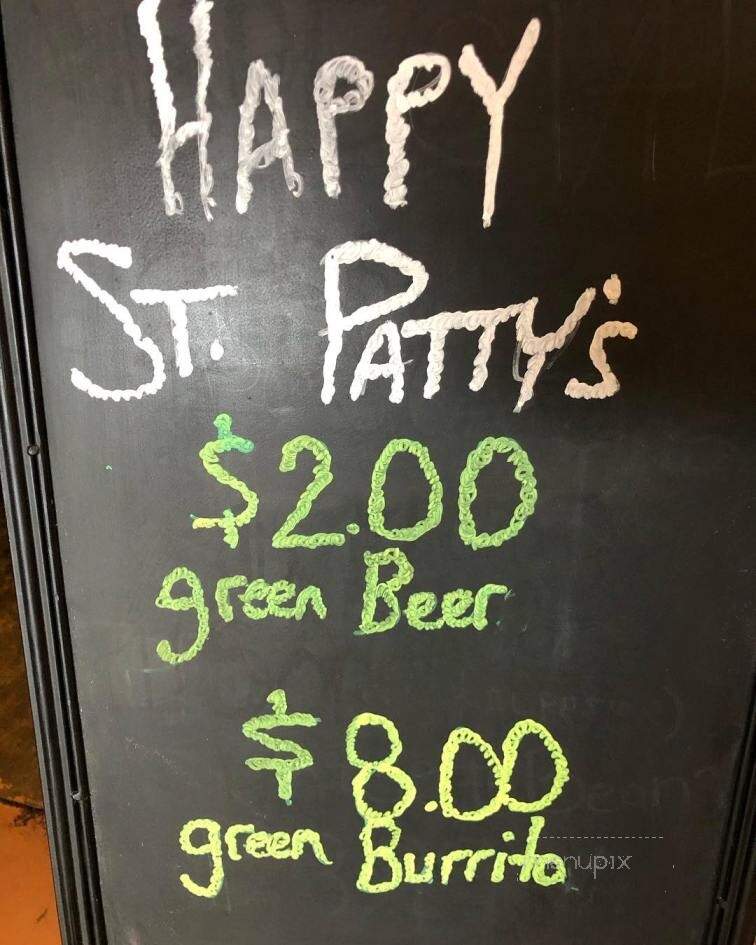 HAPPY
ST. PATTY'S
$2.00
green Beer
$8.00
green Burrito
menupix